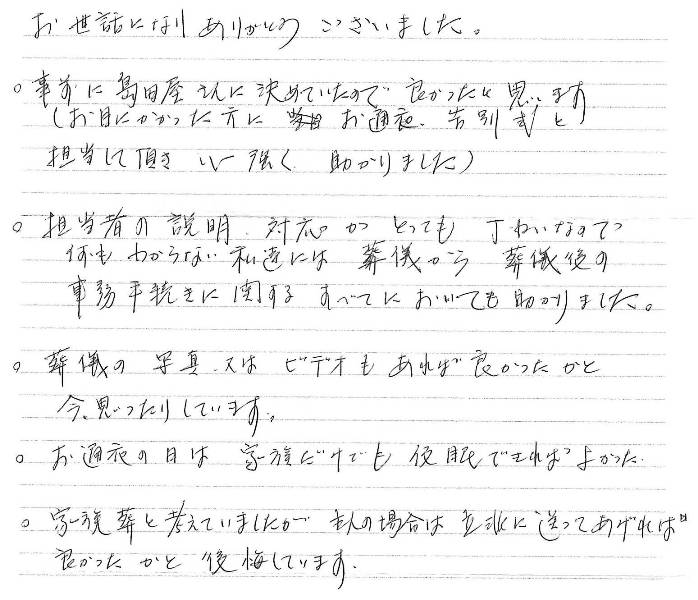 お世話になりありがとうございました。
○事前に島田屋さんに決めていたので良かったと思います
(お目にかかった方に お通夜、告別式と
担当して頂き 心強く 助かりました)
○担当者の説明、対応がとっても丁ねいなので
何もわからない私達には葬儀から葬儀後の
事務手続きに関するすべてにおいても助かりました。
○葬儀の写真、又はビデオもあれば良かったかと
今、思ったりしています。
○お通夜の日は家族だけでも仮眠できればよかった
○家族葬と考えていましたが 主人の場合は立派に送ってあげれば
良かったかと後悔しています。